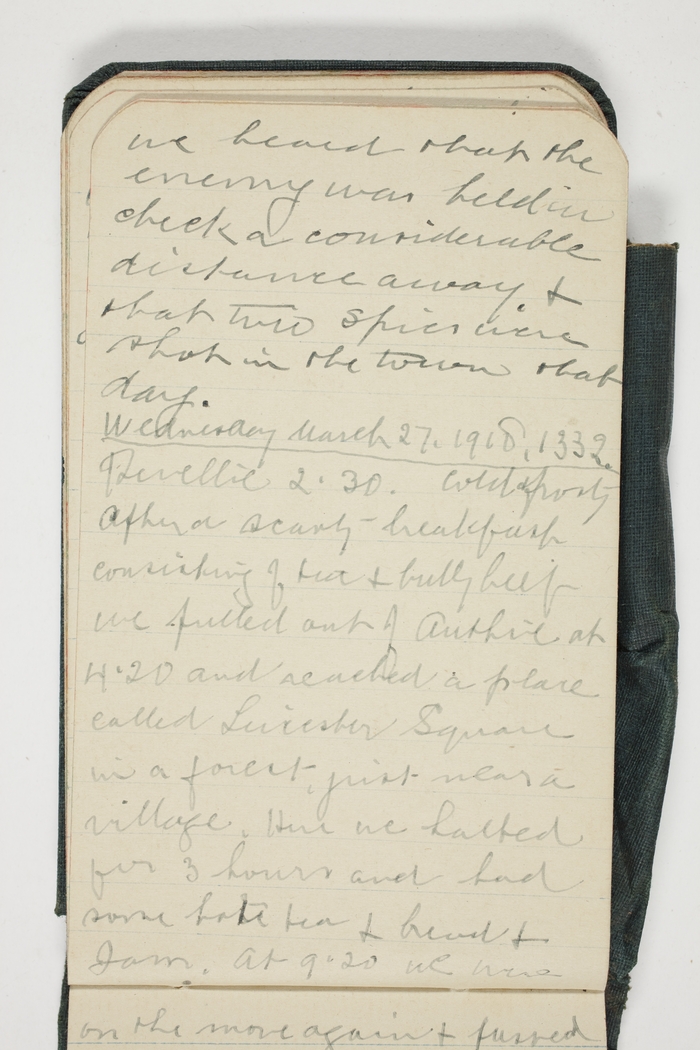 we heard that the
enemy was held in
check a considerable
distance away &
that two spies were
shot in the town that
day.
Wednesday March 27. 1918, 1332.
Revellie 2.30. Cold & frosty
after a scanty breakfast
consisting of tea & bully beef
we pulled out of Authie at
4.20 and reached a place
called Leicester Square
in a forest, just near a
village. Here we halted
for 3 hours and had
some hot tea & bread &
Jam. At 9.20 we were
on the move again & passed